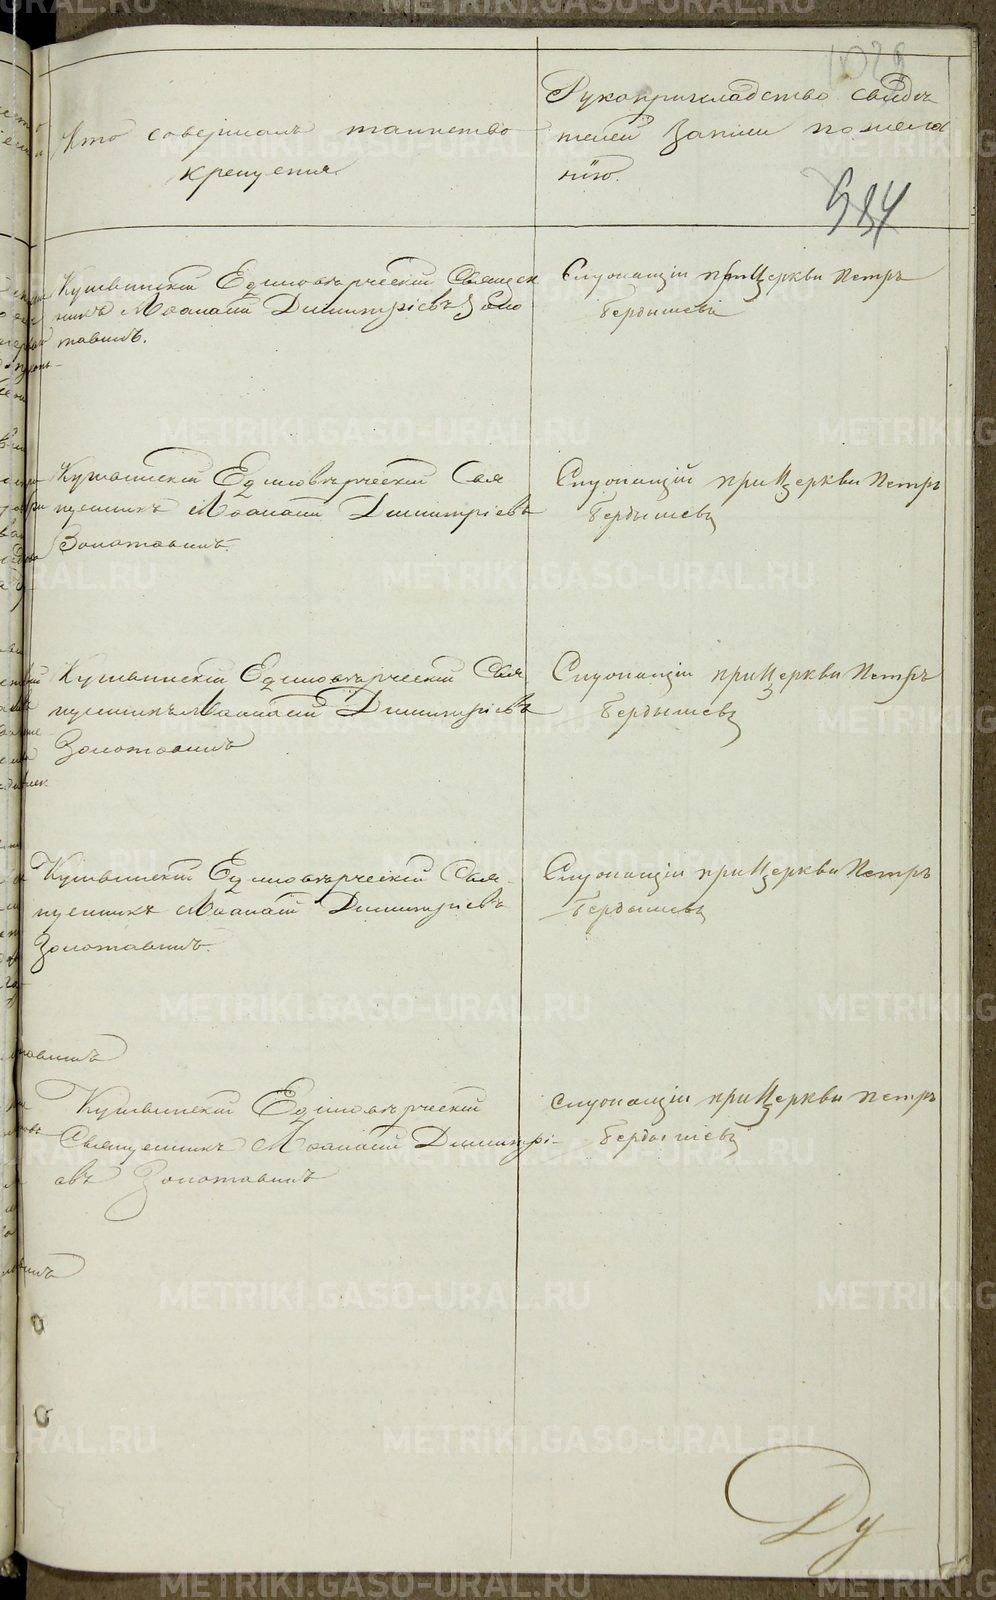 Кто совершалъ таинство
крещенія
Рукоприкладство свидѣ
телей записи по жела
нію.
584
Кушвинскій Единовѣрческій Священ
никъ Иоаннъ Димитріевъ Золо
тавинъ.
Служащій при Церкви Петръ
Бердышевъ
Кушвинскій Единовѣрческій Свя
щенникъ Иоаннъ Димитріевъ
Золотавинъ.
Служащій при Церкви Петръ
Бердышевъ
Кушвинскій Единовѣрческій Свя
щенникъ Иоаннъ Димитріевъ
Золотавинъ
Служащій при Церкви Петръ
Бердышевъ
Кушвинскій Единовѣрческій Свя-
щенникъ Иоаннъ Димитріевъ
Золотавинъ.
Служащій при Церкви Петръ
Бердышевъ
Кушвинскій Единовѣрческій
Священникъ Иоаннъ Димитрі-
евъ Золотавинъ
Служащій при Церкви Петръ
Бердышевъ
Ду
METRIKI.GASO-URAL.RU